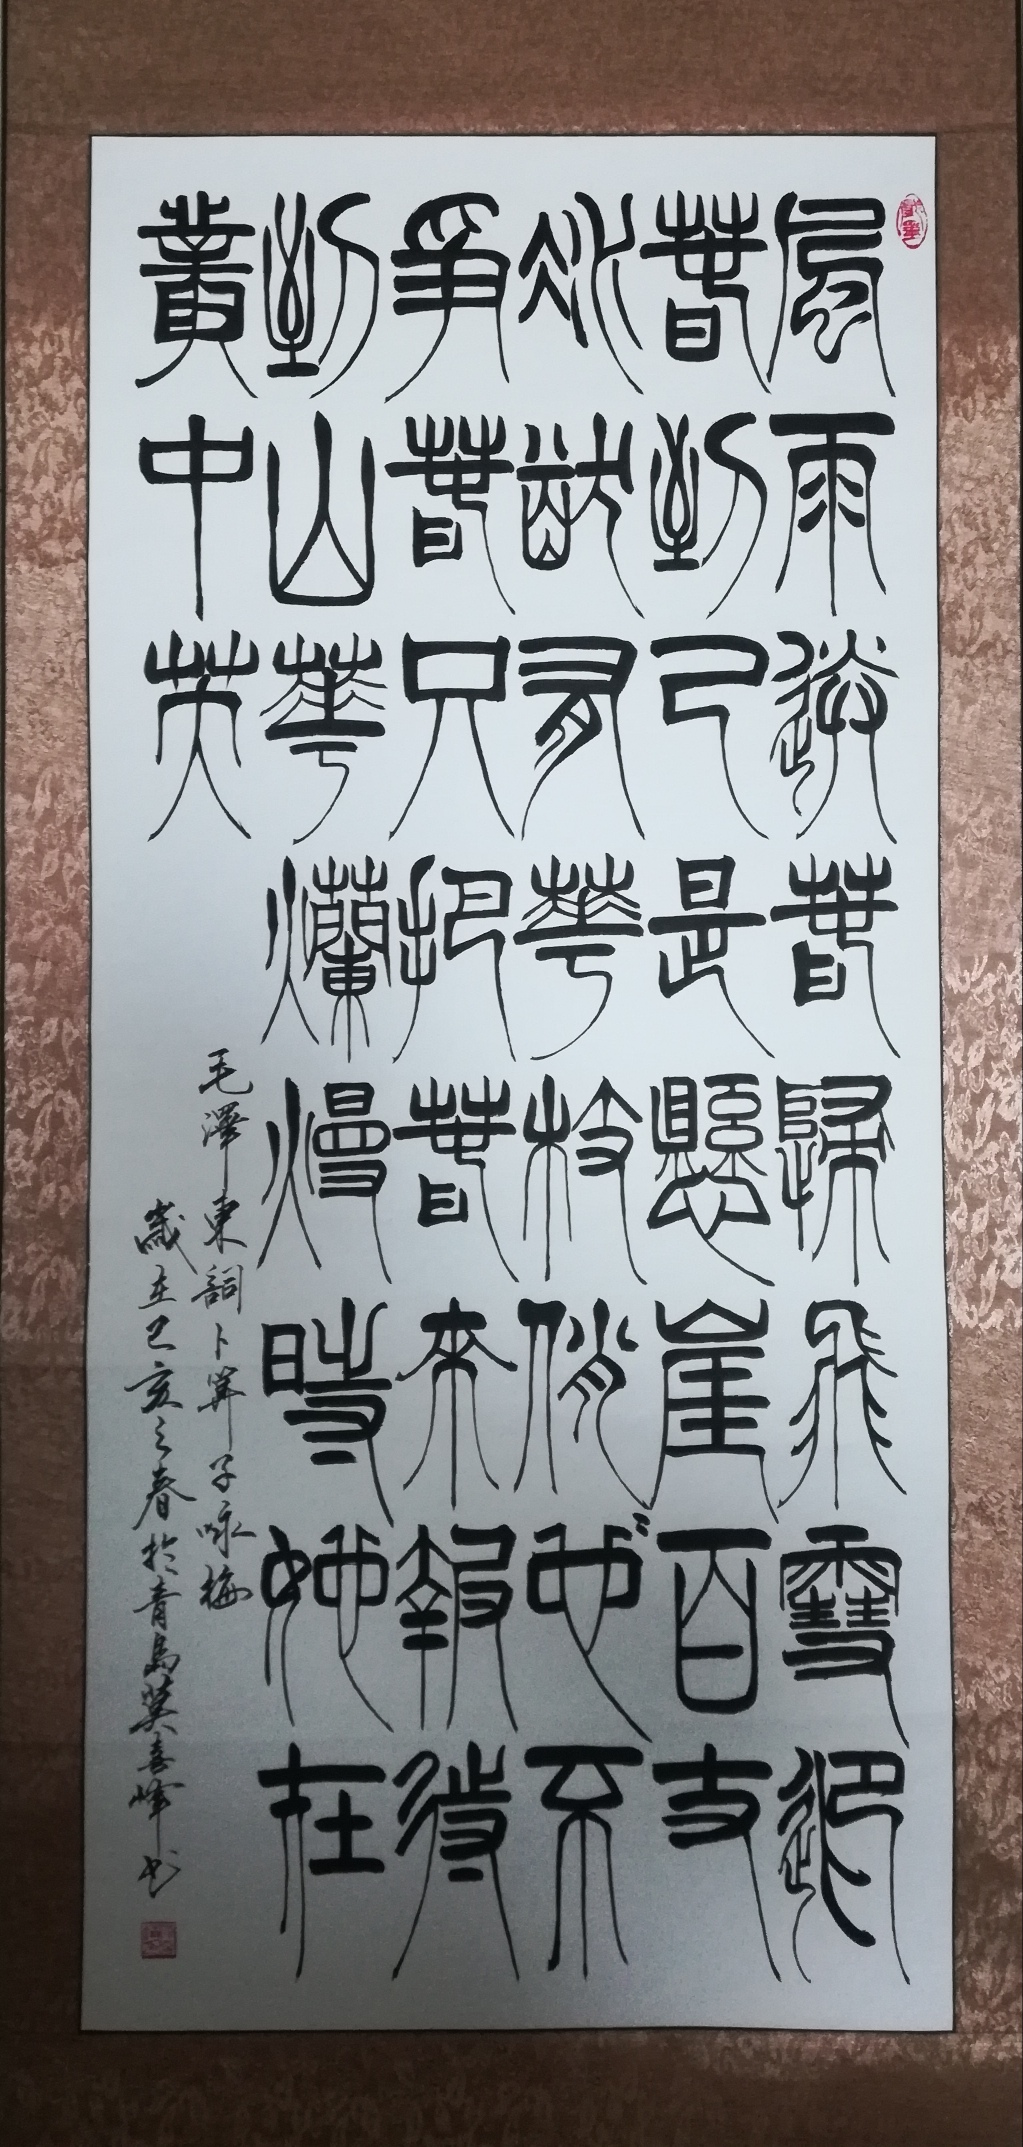 風雨送春歸飛雪迎
春到已是懸崖百丈
冰猶有華枝俏〻也不
爭春只把春來報待
到山華爛熳時她在
叢中笑
毛澤東詞卜筭子咏梅
歲在己亥之春於青島莫喜峰书